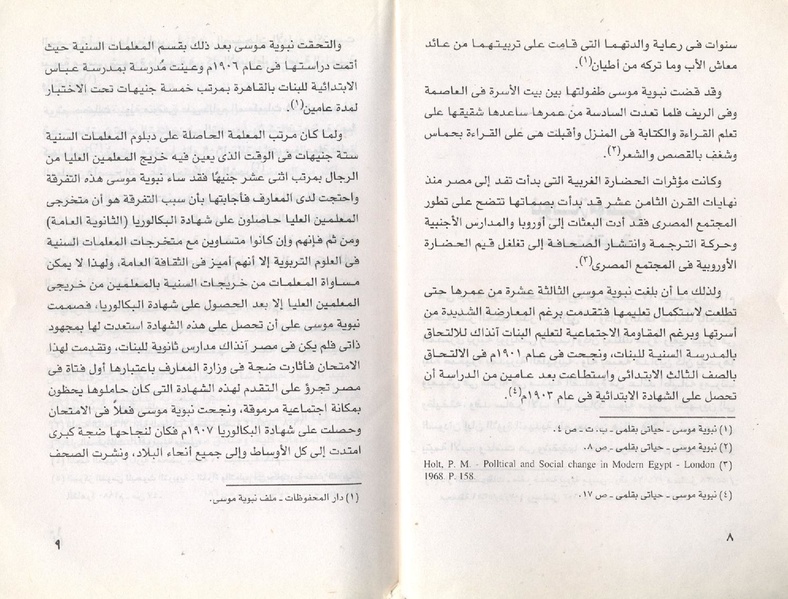 سنوات فى رعاية والدتهما التى قامت على تربيتهما من عائد
معاش الأب وما تركه من أطيان(١).
وقد قضت نبوية موسى طفولتها بين بيت الأسرة فى العاصمة
وفى الريف فلما تعدت السادسة من عمرها ساعدها شقيقها على
تعلم القراءة والكتابة فى المنزل وأقبلت هى على القراءة بحماس
وشغف بالقصص والشعر(٢).
وكانت مؤثرات الحضارة الغربية التى بدأت تفد إلى مصر منذ
نهايات القرن الثامن عشر قد بدأت بصماتها تتضح على تطور
المجتمع المصرى فقد أدت البعثات إلى أوروبا والمدارس الأجنبية
وحركة الترجمة وانتشار الصحافة إلى تغلغل قيم الحضارة
الأوروبية فى المجتمع المصرى(٣).
ولذلك ما أن بلغت نبوية موسى الثالثة عشرة من عمرها حتى
تطلعت لاستكمال تعليمها فتقدمت برغم المعارضة الشديدة من
أسرتها وبرغم المقاومة الاجتماعية لتعليم البنات آنذاك للالتحاق
بالمدرسة السنية للبنات، ونجحت فى عام ١٩٠١م فى الالتحاق
بالصف الثالث الابتدائى واستطاعت بعد عامين من الدراسة أن
تحصل على الشهادة الابتدائية فى عام ١٩٠٣م(٤).
(١) نبوية موسى ـ حياتى بقلمى ـ ب. ت ـ ص ٤.
(٢) نبوية موسى ـ حياتى بقلمى ـ ص ٨.
(٣) Holt, P. M. - Political and Social change in Modern Egypt - London
1968. P. 158.
(٤) نبوية موسى ـ حياتى بقلمى ـ ص ١٧.
٨
والتحقت نبوية موسى بعد ذلك بقسم المعلمات السنية حيث
أتمت دراستها فى عام ١٩٠٦م وعينت مُدرسة بمدرسة عباس
الابتدائية للبنات بالقاهرة بمرتب خمسة جنيهات تحت الاختبار
لمدة عامين(١).
ولما كان مرتب المعلمة الحاصلة على دبلوم المعلمات السنية
ستة جنيهات فى الوقت الذى يعين فيه خريج المعلمين العليا من
الرجال بمرتب اثنى عشر جنيهًا فقد ساء نبوية موسى هذه التفرقة
واحتجت لدى المعارف فأجابتها بأن سبب التفرقة هو أن متخرجى
المعلمين العليا حاصلون على شهادة البكالوريا (الثانوية العامة)
ومن ثم فإنهم وإن كانوا متساوين مع متخرجات المعلمات السنية
فى العلوم التربوية إلا أنهم أميز فى الثقافة العامة، ولهذا لا يمكن
مساواة المعلمات من خريجات السنية بالمعلمين من خريجى
المعلمين العليا إلا بعد الحصول على شهادة البكالوريا، فصممت
نبوية موسى على أن تحصل على هذه الشهادة استعدت لها بمجهود
ذاتى فلم يكن فى مصر آنذاك مدارس ثانوية للبنات، وتقدمت لهذا
الامتحان فأثارت ضجة فى وزارة المعارف باعتبارها أول فتاة فى
مصر تجرؤ على التقدم لهذه الشهادة التى كان حاملوها يحظون
بمكانة اجتماعية مرموقة، ونجحت نبوية موسى فعلاً فى الامتحان
وحصلت على شهادة البكالوريا ١٩٠٧م فكان لنجاحها ضجة كبرى
امتدت إلى كل الأوساط وإلى جميع أنحاء البلاد، ونشرت الصحف
(١) دار المحفوظات ـ ملف نبوية موسى.
٩